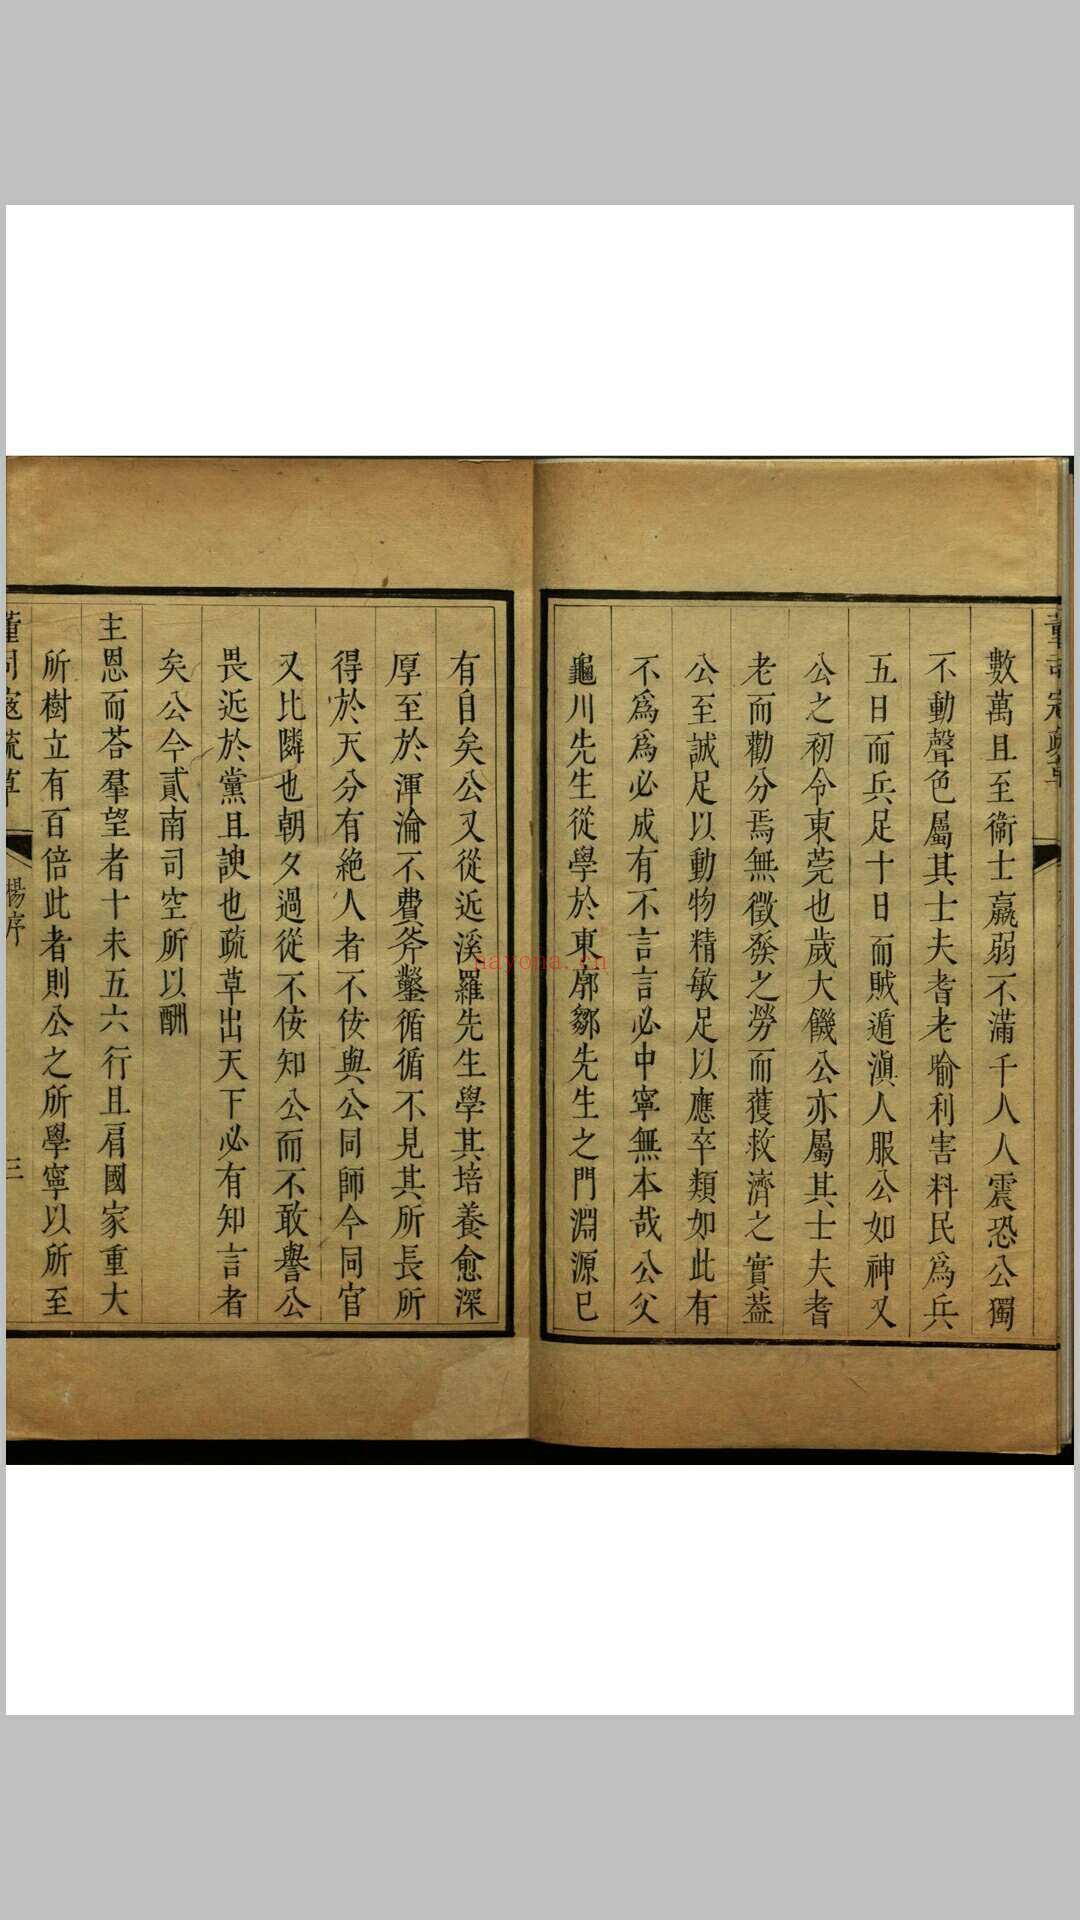 董司寇疏草
數萬且至衞士羸弱不滿千人人震恐公獨
不動聲色屬其士夫耆老喻利害料民爲兵
五日而兵足十日而賊遁滇人服公如神又
公之初令東莞也歲大饑公亦屬其士夫耆
老而勸分焉無徵發之勞而獲救濟之實葢
公至誠足以動物精敏足以應卒類如此有
不爲爲必成有不言言必中寧無本哉公父
龜川先生從學於東廓鄒先生之門淵源已
有自矣公又從近溪羅先生學其培養愈深
厚至於渾淪不費斧鑿循循不見其所長所
得於天分有絶人者不佞與公同師今同官
又比隣也朝夕過從不佞知公而不敢譽公
畏近於黨且諛也疏草出天下必有知言者
矣公今貳南司空所以酬
主恩而荅羣望者十未五六行且肩國家重大
所樹立有百倍此者則公之所學寧以所至
董司寇疏草
楊序
三
nayona.cn